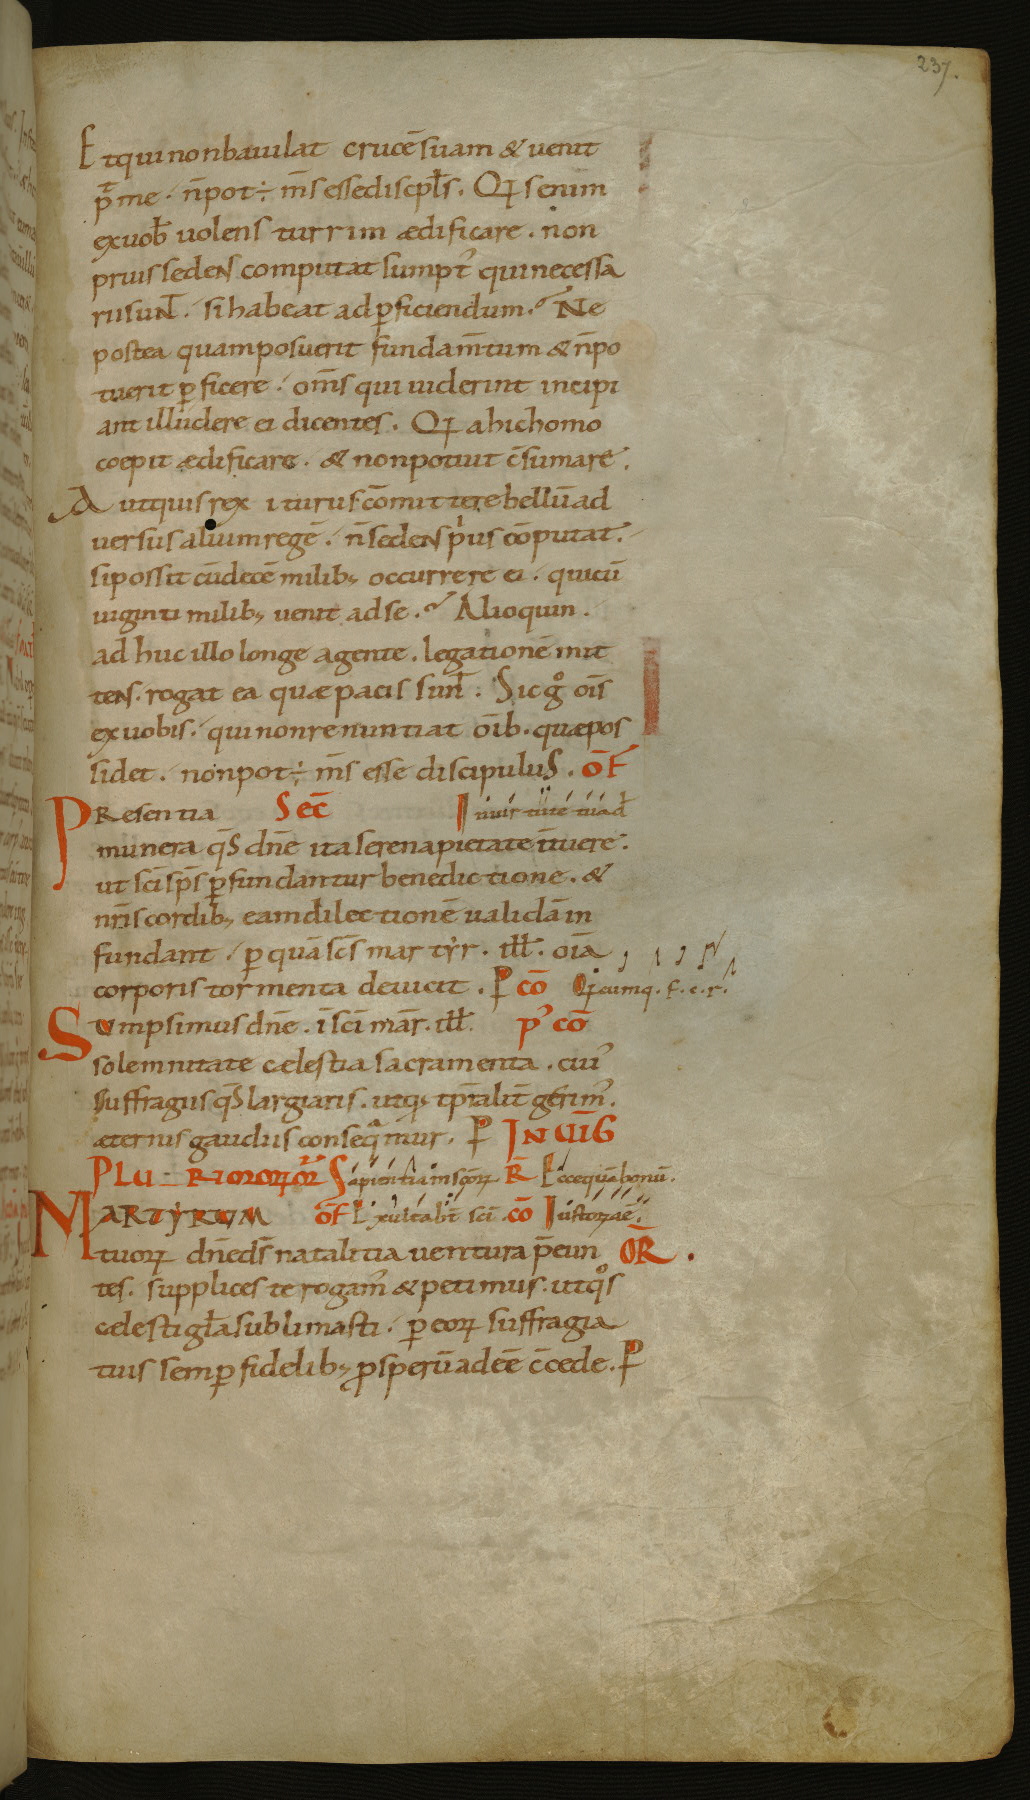 237.
Et qui non baiulat crucē suam & uenit
p̄t me. n̄ pot÷ m̄s esse discipl̄s. Qꝝ s enim
ex uob̄ uolens turrim ædificare. non
prius sedens computat sumpt᾽ qui necessa
rii sunt̄. si habeat ad ꝑficiendum. Ne
postea quam posuerit fundam̄tum & n̄ po
tuerit ꝑficere. om̄s qui uiderint incipi
ant illudere ei dicentes. Qꝝ a hic homo
coepit ædificare. & non potuit c̄sumare.
Aut quis rex iturus cōmittere bellū ad
uersus alium regē. n̄ sedens pⁱus cōputat.
si possit cū decē milibꝫ occurrere ei. qui cū
uiginti milibꝫ uenit ad se. Alioquin.
adhuc illo longe agente. legationē mit
tens. rogat ea quæ pacis sunt̄. Sic gº oīs
ex uobis. qui non renuntiat oīb. quæ pos
sidet. non pot÷ m̄s esse discipulus. OF̄
Presentia SEC̄ In uirtute tua d̄
munera qs̄ dn̄e ita serena pietate ītuere.
ut sc̄i sp̄s ꝑfundantur benedictione. &
nr̄is cordibꝫ eam dilectionē ualidā in
fundant. ꝑ quā sc̄s martyr. ill̄. oīa
corporis tormenta deuicit. P̄ CŌ Qꝝ cumq. f. e. r.
Sumpsimus dn̄e. ī sc̄i mar̄. ill̄. P᾽ CŌ
solemnitate cælestia sacramenta. cui᾽
suffragiis qs̄ largiaris. utqꝫ tp̄raliт̄ gerim᾽.
æternis gaudiis conseqᵃmur. P̄ IN UIG̅
PLURIMORꝜ Sapientiam sc̄orꝝ R̄ Ecce quā bonū.
MARTYRUM OF̄ Exultabt̄ sc̄i. CŌ Iustorꝝ aē.
tuorꝝ dn̄e ds̄ natalitia uentura p̄eun OR̄.
tes. supplices te rogam᾽ & petimus. ut qºs
cælesti gl̄a sublimasti. ꝑ eorꝝ suffragia
tuis semꝑ fidelibꝫ ꝓsperū adeē c̄cede. P̄